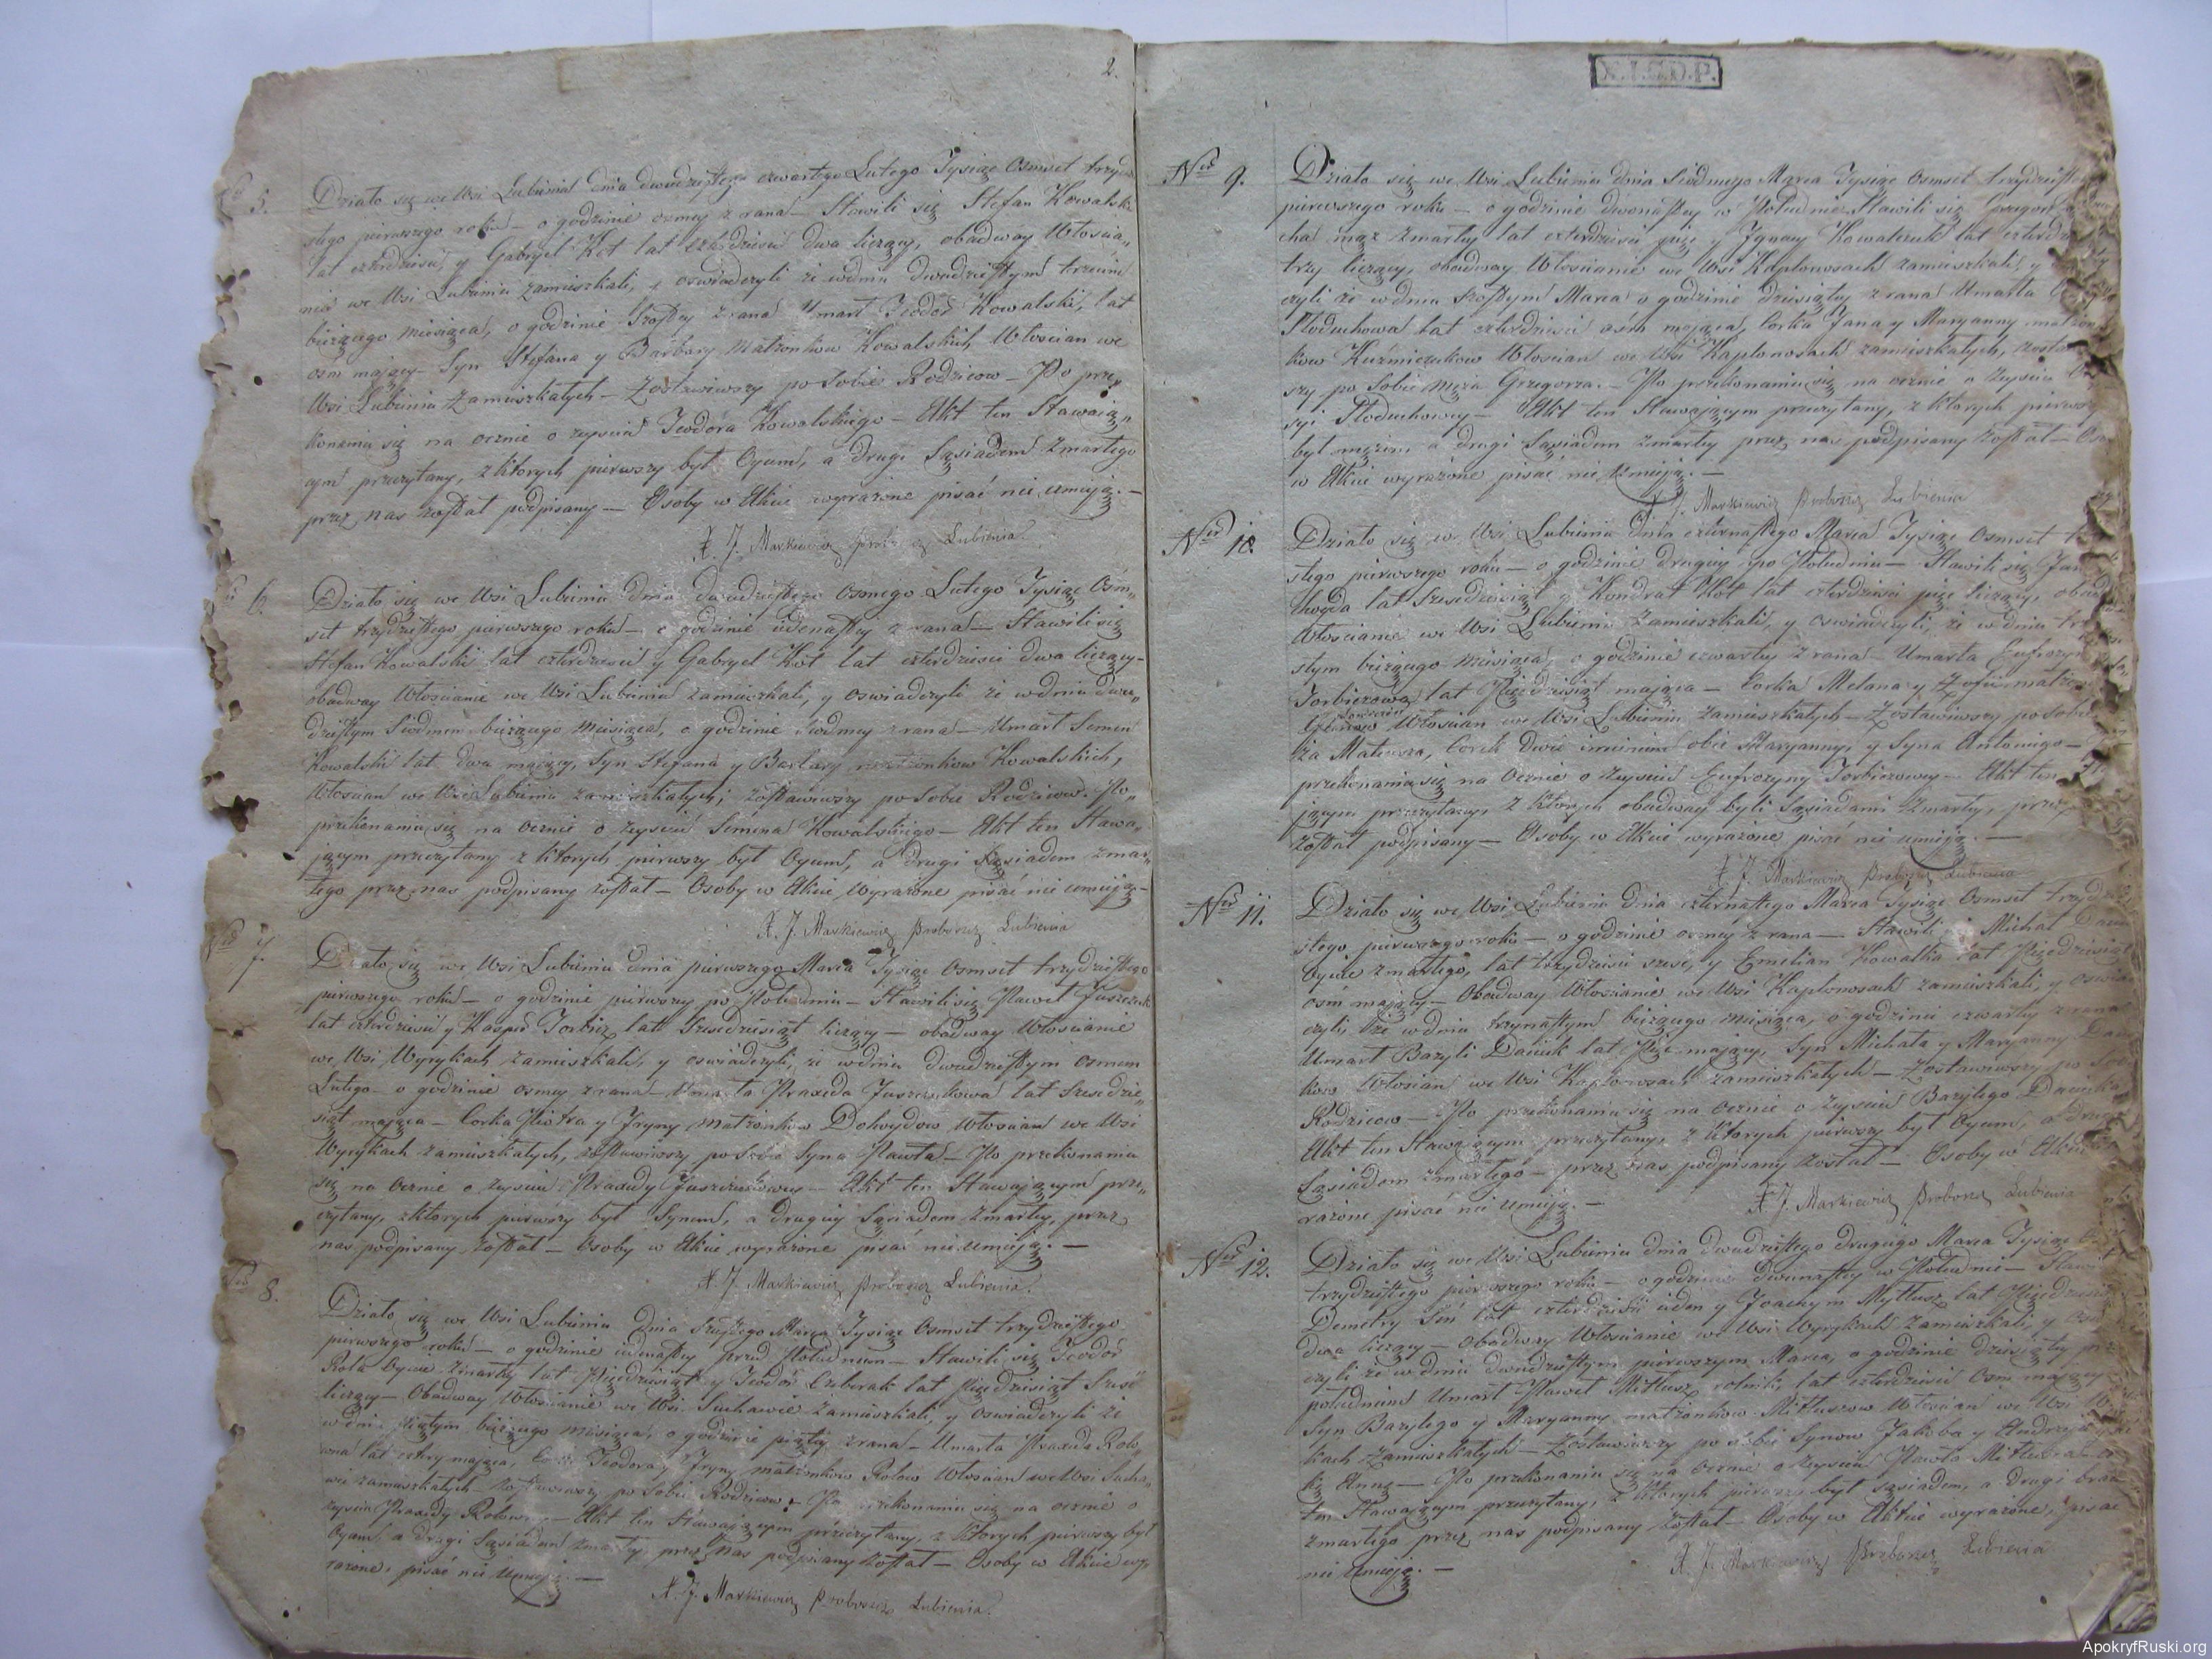 2.
5.
Działo się we Wsi Lubieniu dnia dwudziestego czwartego Lutego Tysiąc Osmset trzydzie
stego pierwszego roku — o godzinie osmey z rana — Stawili się Stefan Kowalski
lat czterdzieści, y Gabryel Kot lat czterdzieści dwa liczący, obadway Włościa„
nie we Wsi Lubieniu zamieszkali, y oswiadczyli że w dniu dwudziestym trzecim
bieżącego miesiąca, o godzinie Szostey z rana Umarł Teodor Kowalski, lat
osm mający — Syn Stefana y Barbary Małżonkow Kowalskich, Włościan we
Wsi Lubieniu Zamieszkałych — Zostawiwszy po sobie Rodzicow — Po prze„
konaniu się na ocznie o zeysciu Teodora Kowalskiego — Akt ten Stawaią„
cym przeczytany, z ktorych pierwszy był Oycem, a drugi Sąsiadem Zmarłego
przez nas został podpisany — Osoby w Akcie wyrażone pisać nie umieją. —
X. J. Markiewicz Proboszcz Lubienia
6.
Działo się we Wsi Lubieniu dnia dwudziestego Osmego Lutego Tysiąc Osm„
set trzydziestego pierwszego roku — o godzinie iedenastey z rana — Stawili się
Stefan Kowalski lat czterdzieści y Gabryel Kot lat czterdzieści dwa liczący —
obadway Włościanie we Wsi Lubieniu zamieszkali, y oswiadczyli że w dniu dwu„
dziestym Siodmem bieżącego miesiąca, o godzinie siodmey z rana — Umarł Semen
Kowalski lat dwa mający, Syn Stefana y Barbary małżonkow Kowalskich,
Włościan we Wsi Lubieniu zamieszkałych; zostawiwszy po sobie Rodzicow. Po„
przekonaniu się na ocznie o zeysciu Semena Kowalskiego — Akt ten Stawa„
jącym przeczytany z ktorych pierwszy był Oycem, a drugi Sąsiadem zmar„
łego przez nas podpisany został — Osoby w Akcie wyrażone pisać nie umieją —
X. J. Markiewicz Proboszcz Lubienia
7.
Działo się we Wsi Lubieniu dnia pierwszego Marca Tysiąc Osmset trzydziestego
pierwszego roku — o godzinie pierwszey po Południu — Stawili się Paweł Juszczuk
lat czterdzieści y Kasper Torbicz lat Szescdziesiąt liczący — obadway Włościanie
we Wsi Wyrykach zamieszkali, y oswiadczyli, że w dniu dwudziestym osmem
Lutego o godzinie osmey z rana Umarła Praxeda Juszczukowa lat Szescdzie„
siąt mająca — Corka Piotra y Jryny Małżonkow Dohwydow Włościan we Wsi
Wyrykach zamieszkałych, zostawiwszy po sobie Syna Pawła — Po przekonaniu
się na ocznie o zeysciu Praxedy Juszczukowey — Akt ten Stawającym prze„
czytany, z ktorych pierwszy był Synem, a drugi Sąsiadem Zmarłey, przez
nas podpisany został — Osoby w Akcie wyrażone pisać nie umieją. —
X. J. Markiewicz Proboszcz Lubienia.
8.
Działo się we Wsi Lubieniu dnia Szostego Marca Tysiąc Osmset trzydziestego
pierwszego roku — o godzinie iedenastey przed Południem — Stawili się Teodor
Rola Oyciec Zmarłey lat Pięcdziesiąt y Teodor lat pięcdziesiąt Szesć
liczący — Obadway Włościanie we Wsi Suchawie zamieszkali, y Oswiadczyli że
w dniu piątym bieżącego miesiąca, o godzinie piątey z rana — Umarła Praxeda Rolo„
wna lat cztery mająca, Corka Teodora y Jryny małżonkow Rolow Włościan we Wsi Sucha„
wie zamieszkałych — zostawiwszy po sobie Rodzicow. Po przekonaniu się na ocznie o
zeysciu Praxedy Rolowny — Akt ten Stawającym przeczytany, z ktorych pierwszy był
Oycem, a drugi Sąsiadem zmarłey przez nas podpisany został — Osoby w Akcie wy„
rażone, pisać nie umieją. —
X. J. Markiewicz Proboszcz Lubienia.
Nro 9.
Działo się we Wsi Lubieniu dnia Siodmego Marca Tysiąc Osmset trzydziesteg
pierwszego roku — o godzinie dwonastey w Południe Stawili się Grzegorz
cha mąż zmarłey lat czterdzieści pięc y Jgnacy Kowalczuk lat czterdzie
trzy liczący, obadway Włościanie we Wsi Kaplonosach zamieszkali, y
czyli że w dniu szostym Marca o godzinie dziesiątey z rana Umarła
Płoduchowa lat czterdzieści osm mająca, Corka Jana y Maryanny małżon
kow Kuźmiczukow Włościan we Wsi Kaplonosach zamieszkałych, zostaw
szy po sobie męża Grzegorza. — Po przekonaniu się na ocznie o zeysciu
syi Płoduchowey — Akt ten Stawającym przeczytany, z ktorych pierwszy
był mężem, a drugi Sąsiadem zmarłey przez nas podpisany został — Oso
w Akcie wyrażone pisać nie umieją. —
X. J. Markiewicz Proboszcz Lubienia
Nro 10.
Działo się we Wsi Lubieniu dnia czternastego Marca Tysiąc Osmset
stego pierwszego roku — o godzinie drugiey po Południu — Stawili się Jan
lat Szescdziesiąt y Kondrat Kot lat czterdzieści pięc liczący, obad
Włościanie we Wsi Lubieniu zamieszkali, y oswiadczyli, że w dniu
stym bieżącego miesiąca, o godzinie czwartey z rana — Umarła Eufrozyn
Torbiczowa lat Pięcdziesiąt mająca — Corka Melana y Zofii małżon
Włościan we Wsi Lubieniu zamieszkałych — Zostawiwszy po sobie
ża Mateusza, Corek dwie imieniem obie Maryanny, y Syna Antoniego —
przekonaniu się na ocznie o zeysciu Eufrozyny Torbiczowey — Akt ten
jącym przeczytany, z ktorych obadway byli Sąsiadami Zmarłey, przez
został podpisany — Osoby w Akcie wyrażone pisać nie umieją. —
X. J. Markiewicz Proboszcz Lubienia
Nro 11.
Działo się we Wsi Lubieniu dnia czternastego Marca Tysiąc Osmset trzydzie
stego pierwszego roku — o godzinie osmey z rana — Stawili się Michał
Oyciec zmarłego, lat trzydzieści szesć, y Emelian Kowalka lat Pięcdziesiąt
osm mający — Obadway Włościanie we Wsi Kaplonosach zamieszkali, y oswiad
czyli, że w dniu trzynastym bieżącego miesiąca, o godzinie czwartey z rana
Umarł Bazyli Daniuk lat Pięc mający, Syn Michała y Maryanny
kow Włościan we Wsi Kaplonosach zamieszkałych — Zostawiwszy po Sobie
Rodzicow — Po przekonaniu się na ocznie o zeysciu Bazylego Daniuka
Akt ten Stawającym przeczytany, z ktorych pierwszy był Oycem, a drugi
Sąsiadem zmarłego — przez nas podpisany został — Osoby w Akcie
rażone pisać nie umieją. —
X. J. Markiewicz Proboszcz Lubienia
Nro 12.
Działo się we Wsi Lubieniu dnia dwudziestego drugiego Marca Tysiąc
trzydziestego pierwszego roku — o godzinie dwunastey w Południe — Stawili
Demetry lat czterdzieści ieden y Joachym Mytlusz lat Pięcdziesiąt
dwa liczący — Obadway Włościanie we Wsi Wyrykach zamieszkali, y Osw
czyli że w dniu dwudziestym pierwszym Marca, o godzinie dziesiątey prz
południem Umarł Paweł Mitlusz rolnik, lat czterdzieści Osm mający
Syn Bazylego y Maryanny małżonkow Mitluszow Włościan we Wsi
kach zamieszkałych — Zostawiwszy po sobie Synow Jakoba y Andrzeja
kę Annę — Po przekonaniu się na ocznie o zeysciu Pawła Mitlusza
ten Stawającym przeczytany, z ktorych pierwszy był sąsiadem, a drugi brat
zmarłego przez nas podpisany został — Osoby w Akcie wyrażone, pisać
nie umieją. —
X. J. Markiewicz Proboszcz Lubienia
ApokryfRuski.org